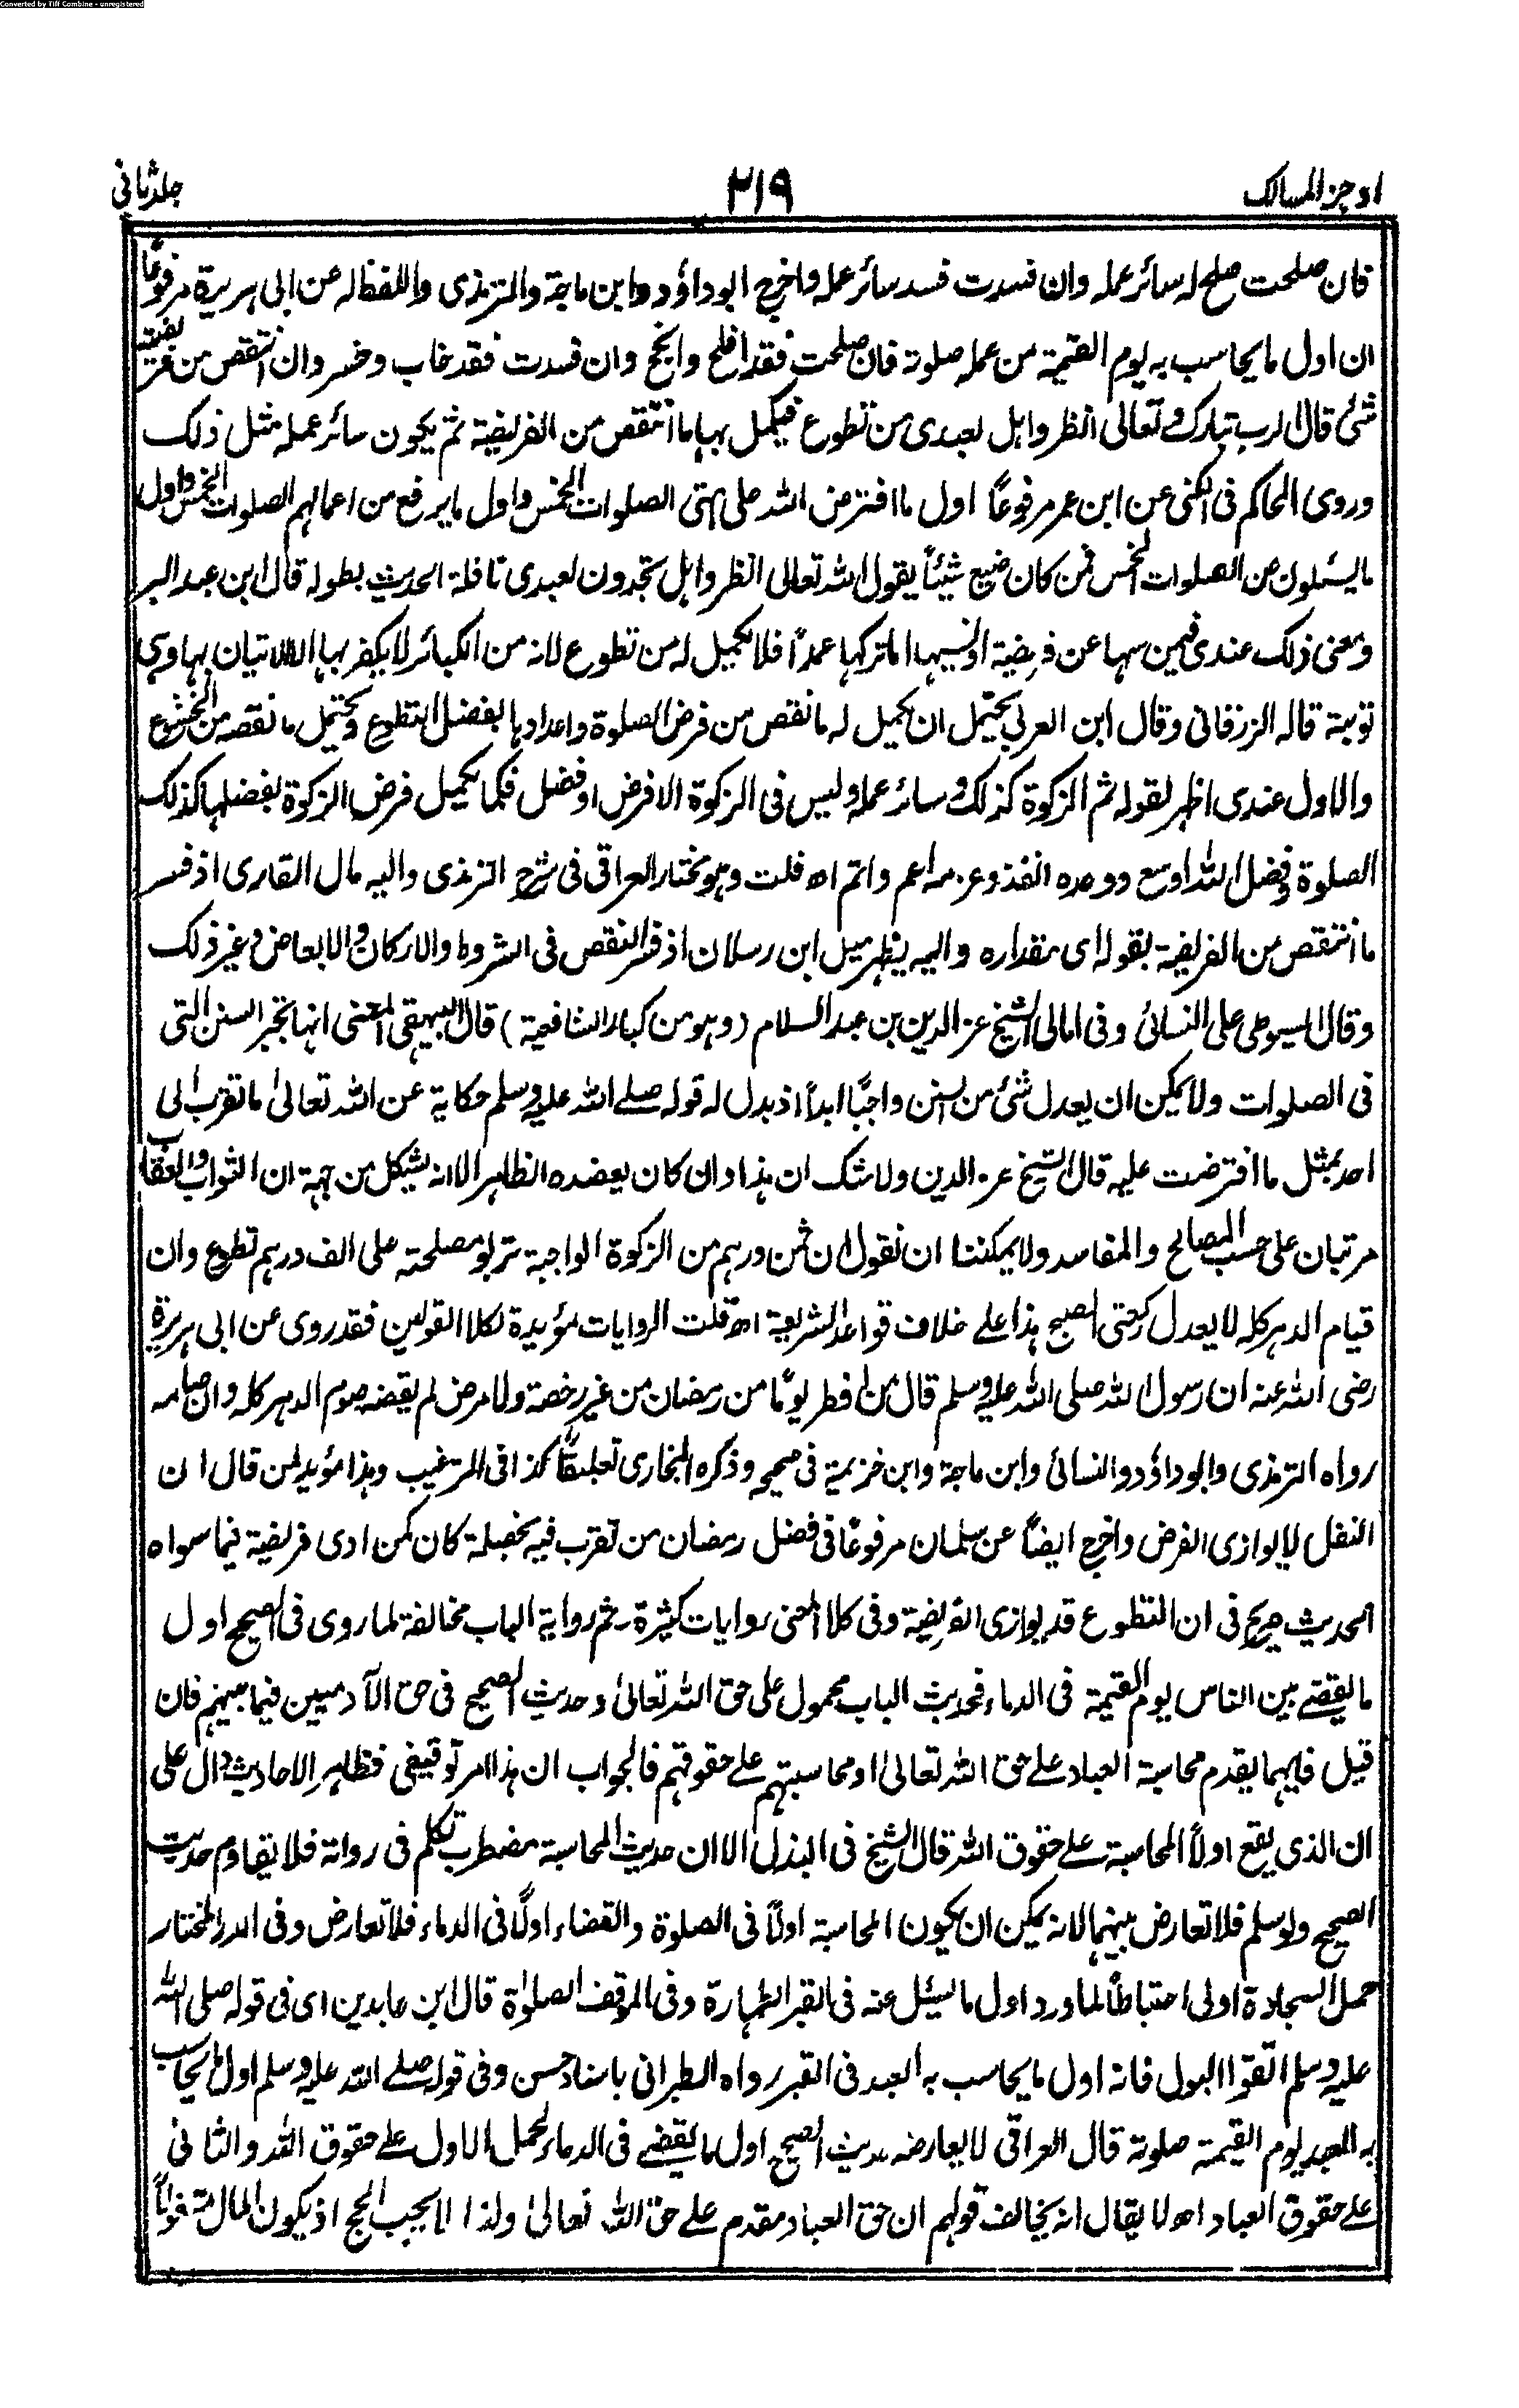 Converted by Tiff Combine - unregistered
اوجز المسالك ٢١٩ جلد ثانى
فان صلحت صلح له سائر عمله وان فسدت فسد سائر عمله واخرج ابوداؤد وابن ماجة والترمذى واللفظ له عن ابى هريرة مرفوعًا
ان اول ما يحاسب به يوم القيمة من عمله صلوته فان صلحت فقد افلح وانجح وان فسدت فقد خاب وخسر وان انتقص من فريضته
شئ قال الرب تبارك وتعالى انظروا هل لعبدى من تطوع فيكمل بها ما انتقص من الفريضة ثم يكون سائر عمله مثل ذلك
وروى الحاكم فى الكنى عن ابن عمر مرفوعًا اول ما افترض الله على امتى الصلوات الخمس واول ما يرفع من اعمالهم الصلوات الخمس واول
ما يسئلون من الصلوات الخمس فمن كان ضيع شيئًا يقول الله تعالى انظروا هل تجدون لعبدى نافلة الحديث بطوله قال ابن عبدالبر
ومعنى ذلك عندى فيمن سها عن فريضة او نسيها اما تركها عمدًا فلا يكمل له من تطوع لانه من الكبائر لا يكفر بها الا الاتيان بها وهى
توبته قاله الزرقانى وقال ابن العربى يحتمل ان يكمل له ما نقص من فرض الصلوة واعدادها بفضل التطوع ويحتمل ما نقصه من الخشوع
والاول عندى اظهر لقوله ثم الزكوة كذلك وسائر عمله وليس فى الزكوة الا فرض او فضل فكما يكمل فرض الزكوة بفضلها كذلك
الصلوة وفضل الله اوسع ووعده انفذ وعزمه اعم واتم اه قلت وهو مختار العراقى فى شرح الترمذى واليه مال القارى اذ فسر
ما انتقص من الفريضة بقوله اى مقداره واليه يظهر ميل ابن رسلان اذ فسر النقص فى الشروط والاركان والابعاض وغير ذلك
وقال السيوطى على النسائى وفى امالى الشيخ عز الدين بن عبد السلام (وهو من كبار الشافعية) قال البيهقى المعنى انها تجبر السنن التى
فى الصلوات ولا يمكن ان يعدل شئ من السنن واجبًا ابدًا اذ يدل له قوله صلے الله عليه وسلم حكاية عن الله تعالىٰ ما تقرب الى
احد بمثل ما افترضت عليه قال الشيخ عز الدين ولا شك ان هذا وان كان يعضده الظاهر الا انه يشكل من جهة ان الثواب والعقاب
مرتبان على حسب المصالح والمفاسد ولا يمكننا ان نقول ان ثمن درهم من الزكوة الواجبة تربو مصلحته على الف درهم تطوع وان
قيام الدهر كله لا يعدل ركعتى الصبح هذا علے خلاف قواعد الشريعة اه قلت الروايات مؤيدة لكلا القولين فقد روى عن ابى هريرة
رضى الله عنه ان رسول الله صلى الله عليه وسلم قال من افطر يومًا من رمضان من غير رخصة ولا مرض لم يقضه صوم الدهر كله وان صامه
رواه الترمذى وابوداؤد والنسائى وابن ماجة وابن خزيمة فى صحيحه وذكره البخارى تعليقًا كذا فى الترغيب وهذا مؤيد لمن قال ان
النفل لا يوازى الفرض واخرج ايضًا عن سلمان مرفوعًا فى فضل رمضان من تقرب فيه بخصلة كان كمن ادى فريضة فيما سواه
الحديث صريح فى ان التطوع قد يوازى الفريضة وفى كلا المعنى روايات كثيرة ثم رواية الباب مخالفة لما روى فى الصحيح اول
ما يقضے بين الناس يوم القيمة فى الدماء فحديث الباب محمول على حق الله تعالىٰ وحديث الصحيح فى حق الآدميين فيما بينهم فان
قيل فايهما يقدم محاسبة العباد علے حق الله تعالىٰ او محاسبتهم علے حقوقهم فالجواب ان هذا امر توقيفى فظاهر الاحاديث دال على
ان الذى يقع اولاً المحاسبة علے حقوق الله قال الشيخ فى البذل الا ان حديث المحاسبة مضطرب تكلم فى رواته فلا يقاوم حديث
الصحيح ولو سلم فلا تعارض بينهما لانه يمكن ان يكون المحاسبة اولاً فى الصلوة والقضاء اولاً فى الدماء فلا تعارض وفى الدر المختار
حمل السجادة اولى احتياطًا لما ورد اول ما يسئل عنه فى القبر الطهارة وفى الموقف الصلوٰة قال ابن عابدين اى فى قوله صلى الله
عليه وسلم اتقوا البول فانه اول ما يحاسب به العبد فى القبر رواه الطبرانى باسناد حسن وفى قوله صلے الله عليه وسلم اول ما يحاسب
به العبد يوم القيمة صلوته قال العراقى لا يعارضه حديث الصحيح اول ما يقضے فى الدماء لحمل الاول علے حقوق الله والثانى
علے حقوق العباد اه لا يقال انه يخالف قولهم ان حق العباد مقدم علے حق الله تعالىٰ ولذا لا يجب الحج اذ يكون المال